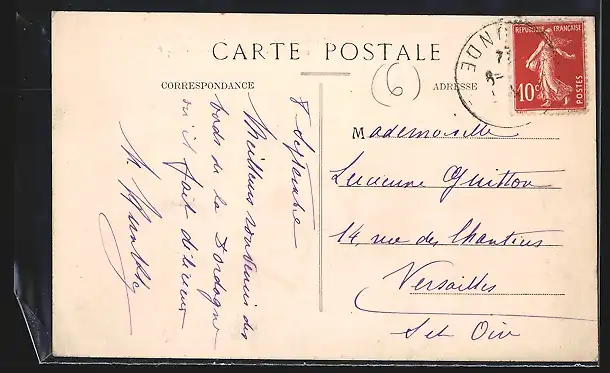 CARTE POSTALE
CORRESPONDANCE
ADRESSE
(6)
RÉPUBLIQUE FRANÇAISE
10c
POSTES
8 septembre
Meilleurs souvenirs des
bords de la Dordogne
où il fait délicieux
Mademoiselle
Lucienne Guitton
14, rue des Chantiers
Versailles
S et Oise